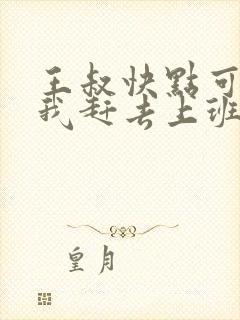 王叔快點可
我赶去上班
皇月